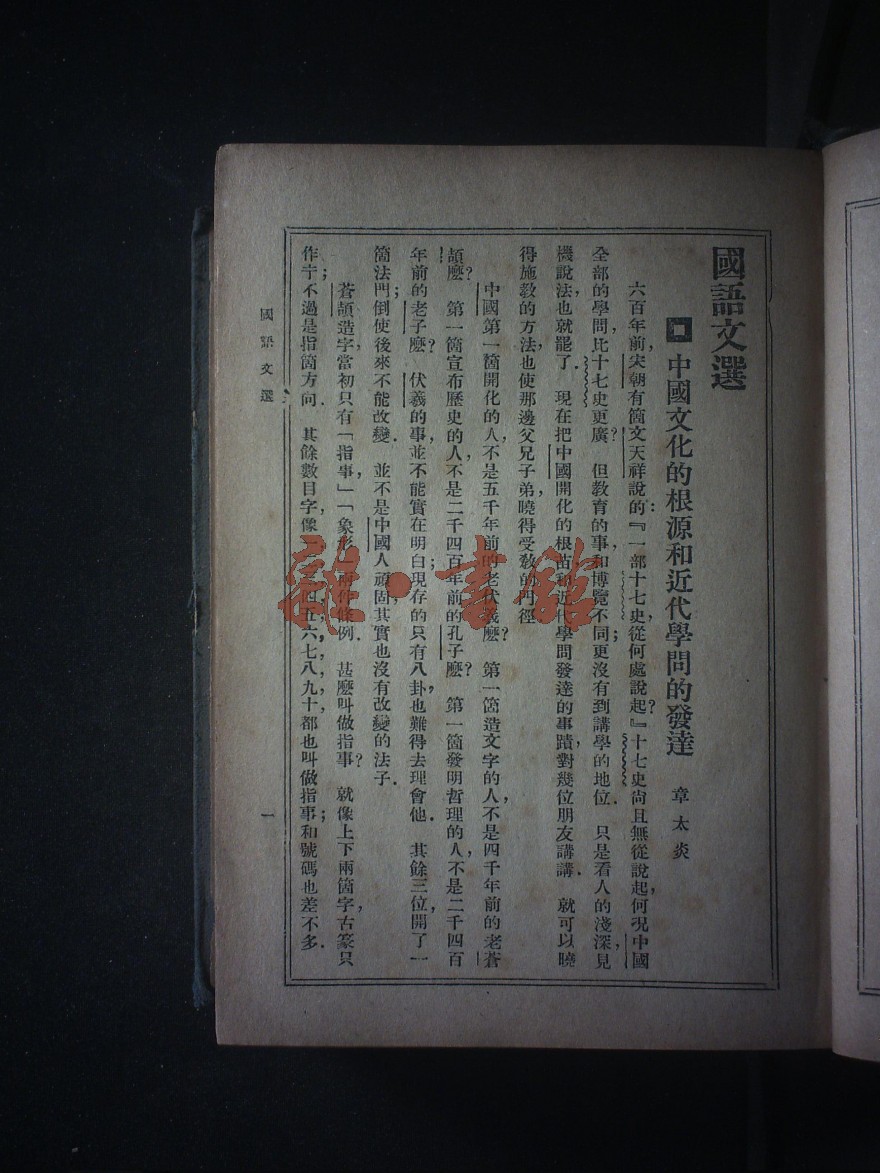 國語文選
中國文化的根源和近代學問的發達　章太炎
六百年前,宋朝有箇文天祥說的:『一部十七史,從何處說起?』十七史尚且無從說起,何況中國
全部的學問,比十七史更廣?　但教育的事,和博覽不同;更沒有到講學的地位.　只是看人的淺深,見
機說法,也就罷了.　現在把中國開化的根苗和近代學問發達的事蹟,對幾位朋友講講.　就可以曉
得施教的方法,也使那邊父兄子弟,曉得受教的門徑.
中國第一箇開化的人,不是五千年前的老伏羲麼?　第一箇造文字的人,不是四千年前的老蒼
頡麼?　第一箇宣布歷史的人,不是二千四百年前的孔子麼?　第一箇發明哲理的人,不是二千四百
年前的老子麼?　伏羲的事,並不能實在明白;現存的只有八卦,也難得去理會他.　其餘三位,開了一
箇法門;倒使後來不能改變.　並不是中國人頑固,其實也沒有改變的法子.
蒼頡造字,當初只有「指事,」「象形」兩件條例.　甚麼叫做指事?　就像上下兩箇字,古篆只
作;不過是指箇方向.　其餘數目字,像一,二,三,四,五,六,七,八,九,十都也叫做指事;和號碼也差不多.
國語文選
一
雜·書館